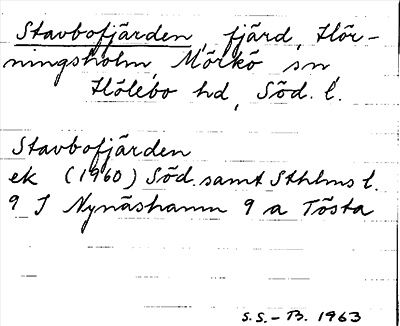 Stavbofjärden, fjärd, Hör-
ningsholm, Mörkö sn
Hölebo hd, Söd. l.
Stavbofjärden
ek (1960) Söd. samt Sthlms l.
9 I Nynäshamn 9 a Tösta
S.S.-B. 1963